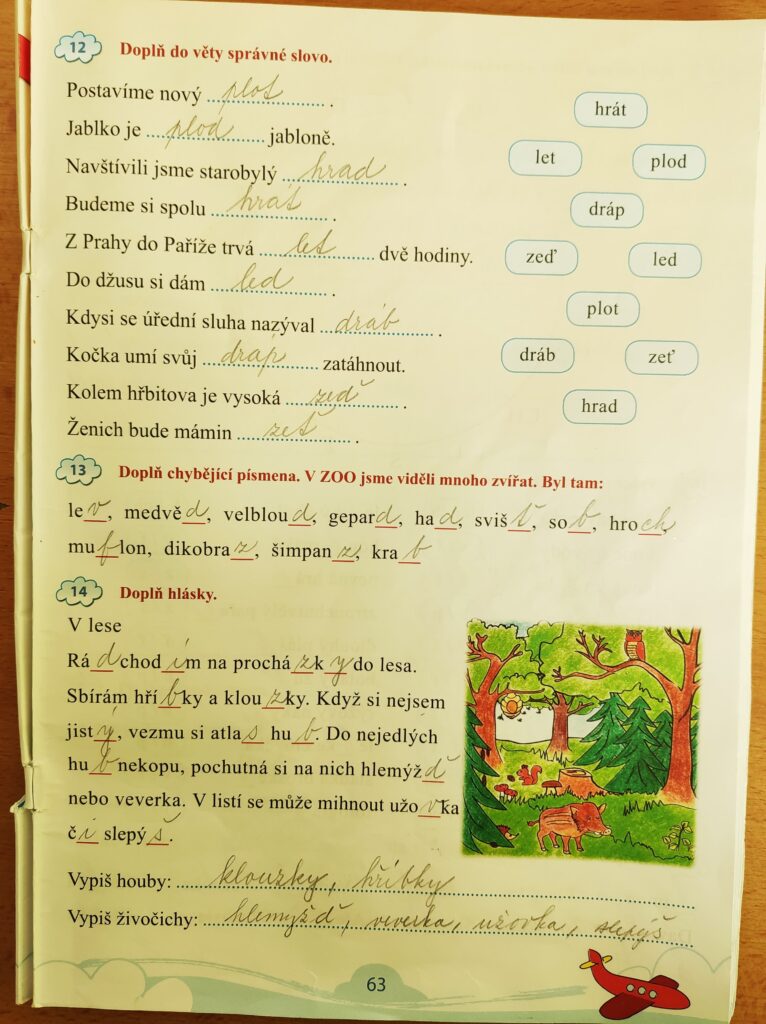 12 Doplň do věty správné slovo.
Postavíme nový plot.
Jablko je plod jabloně.
Navštívili jsme starobylý hrad.
Budeme si spolu hrát.
Z Prahy do Paříže trvá let dvě hodiny.
Do džusu si dám led.
Kdysi se úřední sluha nazýval dráb.
Kočka umí svůj dráp zatáhnout.
Kolem hřbitova je vysoká zeď.
Ženich bude mámin zeť.
hrát
let plod
dráp
zeď led
plot
dráb zeť
hrad
13 Doplň chybějící písmena. V ZOO jsme viděli mnoho zvířat. Byl tam:
lev, medvěd, velbloud, gepard, had, svišť, sob, hroch,
muflon, dikobraz, šimpanz, krab
14 Doplň hlásky.
V lese
Rád chodím na procházky do lesa.
Sbírám hříbky a klouzky. Když si nejsem
jistý, vezmu si atlas hub. Do nejedlých
hub nekopu, pochutná si na nich hlemýžď
nebo veverka. V listí se může mihnout užovka
či slepýš.
Vypiš houby: klouzky, hříbky
Vypiš živočichy: hlemýžď, veverka, užovka, slepýš
63